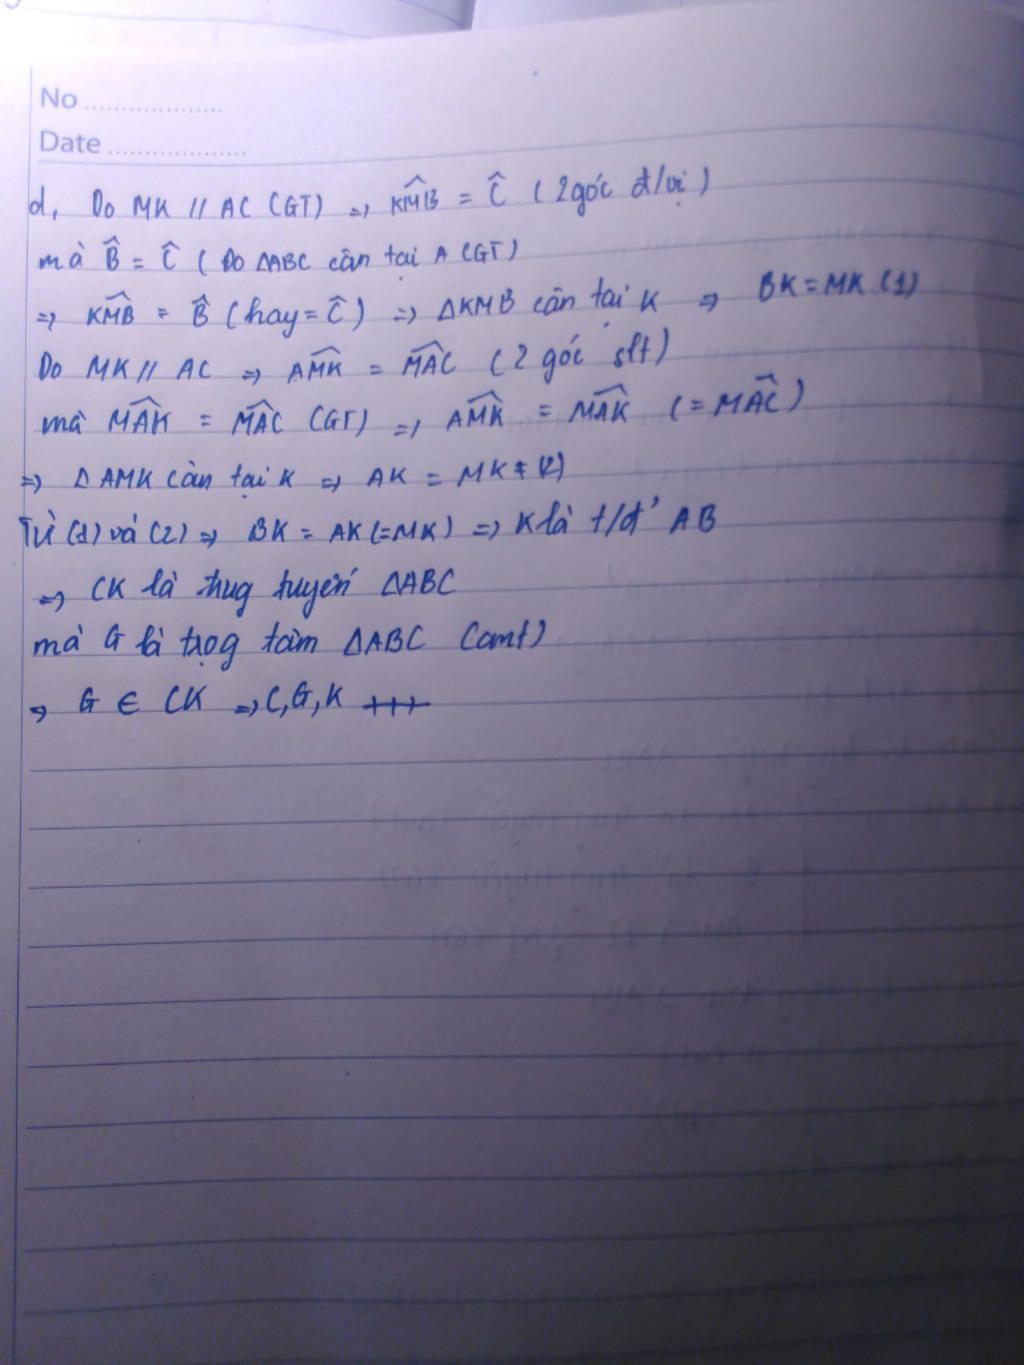 No ....................
Date ....................
d, Do MK // AC (GT) => KM̂B = Ĉ (2 góc đ/vị)
mà B̂ = Ĉ (Do ΔABC cân tại A (GT)
=> KM̂B = B̂ (hay = Ĉ) => ΔKMB cân tại K => BK = MK (1)
Do MK // AC => AM̂K = MÂC (2 góc slt)
mà MÂK = MÂC (GT) => AM̂K = MÂK (= MÂC)
=> ΔAMK cân tại K => AK = MK (2)
Từ (1) và (2) => BK = AK (= MK) => K là t/đ' AB
=> CK là trug tuyến ΔABC
mà G là trọg tâm ΔABC (cmt)
=> G ∈ CK => C, G, K